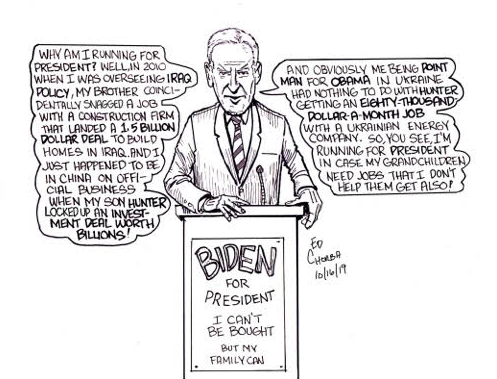 WHY AM I RUNNING FOR
PRESIDENT? WELL, IN 2010
WHEN I WAS OVERSEEING IRAQ
POLICY, MY BROTHER COINCI-
DENTALLY SNAGGED A JOB
WITH A CONSTRUCTION FIRM
THAT LANDED A 1.5 BILLION
DOLLAR DEAL TO BUILD
HOMES IN IRAQ. AND I
JUST HAPPENED TO BE
IN CHINA ON OFFI-
CIAL BUSINESS
WHEN MY SON HUNTER
LOCKED UP AN INVEST-
MENT DEAL WORTH
BILLIONS!
AND OBVIOUSLY ME BEING POINT
MAN FOR OBAMA IN UKRAINE
HAD NOTHING TO DO WITH HUNTER
GETTING AN EIGHTY-THOUSAND-
DOLLAR-A-MONTH JOB
WITH A UKRAINIAN ENERGY
COMPANY. SO, YOU SEE, I'M
RUNNING FOR PRESIDENT
IN CASE MY GRANDCHILDREN
NEED JOBS THAT I DON'T
HELP THEM GET ALSO!
BIDEN
FOR
PRESIDENT
I CAN'T
BE BOUGHT
BUT MY
FAMILY CAN
ED
CHORBA
10/16/19